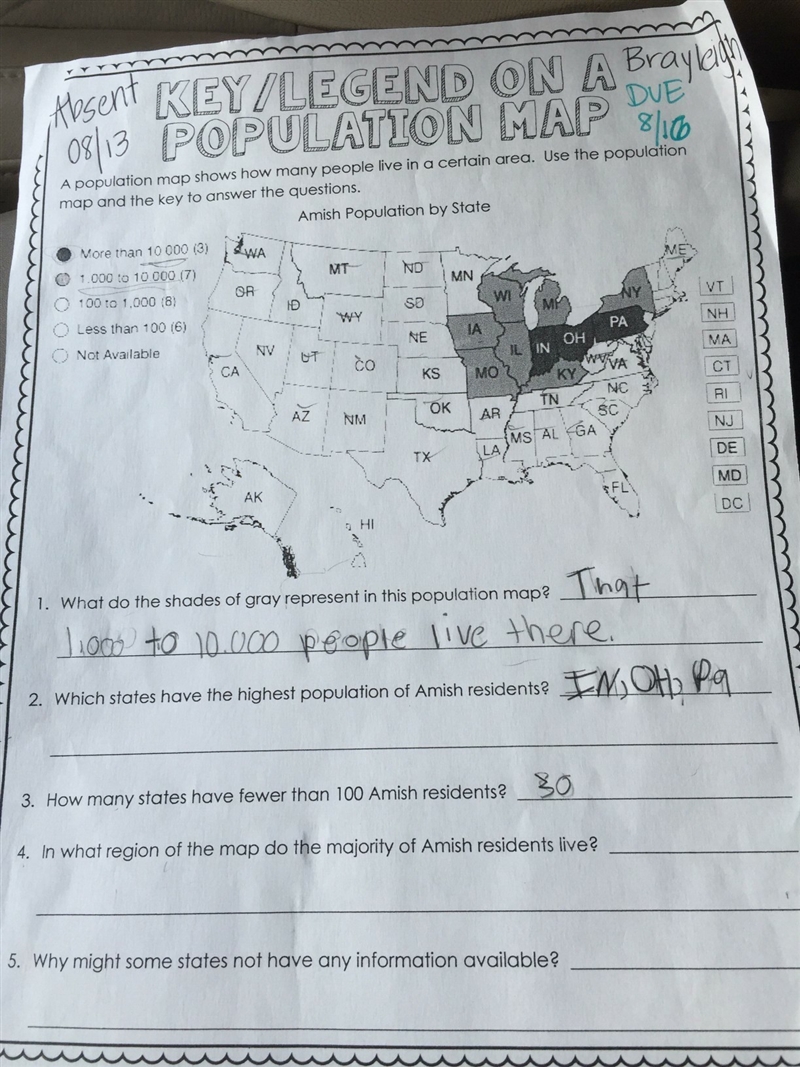 Absent
08/13
KEY/LEGEND ON A
POPULATION MAP
Brayleigh
DUE
8/16
A population map shows how many people live in a certain area. Use the population
map and the key to answer the questions.
Amish Population by State
More than 10 000 (3)
1.000 to 10 000 (7)
100 to 1,000 (8)
Less than 100 (6)
Not Available
WA
MT
ND
MN
ME
OR
ID
WY
SD
WI
MI
NY
NV
UT
CO
NE
IA
IL
IN
OH
PA
CA
KS
MO
KY
WV
VA
AZ
NM
OK
AR
TN
NC
SC
TX
LA
MS
AL
GA
FL
AK
HI
VT
NH
MA
CT
RI
NJ
DE
MD
DC
1. What do the shades of gray represent in this population map? That
1,000 to 10.000 people live there.
2. Which states have the highest population of Amish residents? IN, OH, Pa
3. How many states have fewer than 100 Amish residents? 30
4. In what region of the map do the majority of Amish residents live?
5. Why might some states not have any information available?